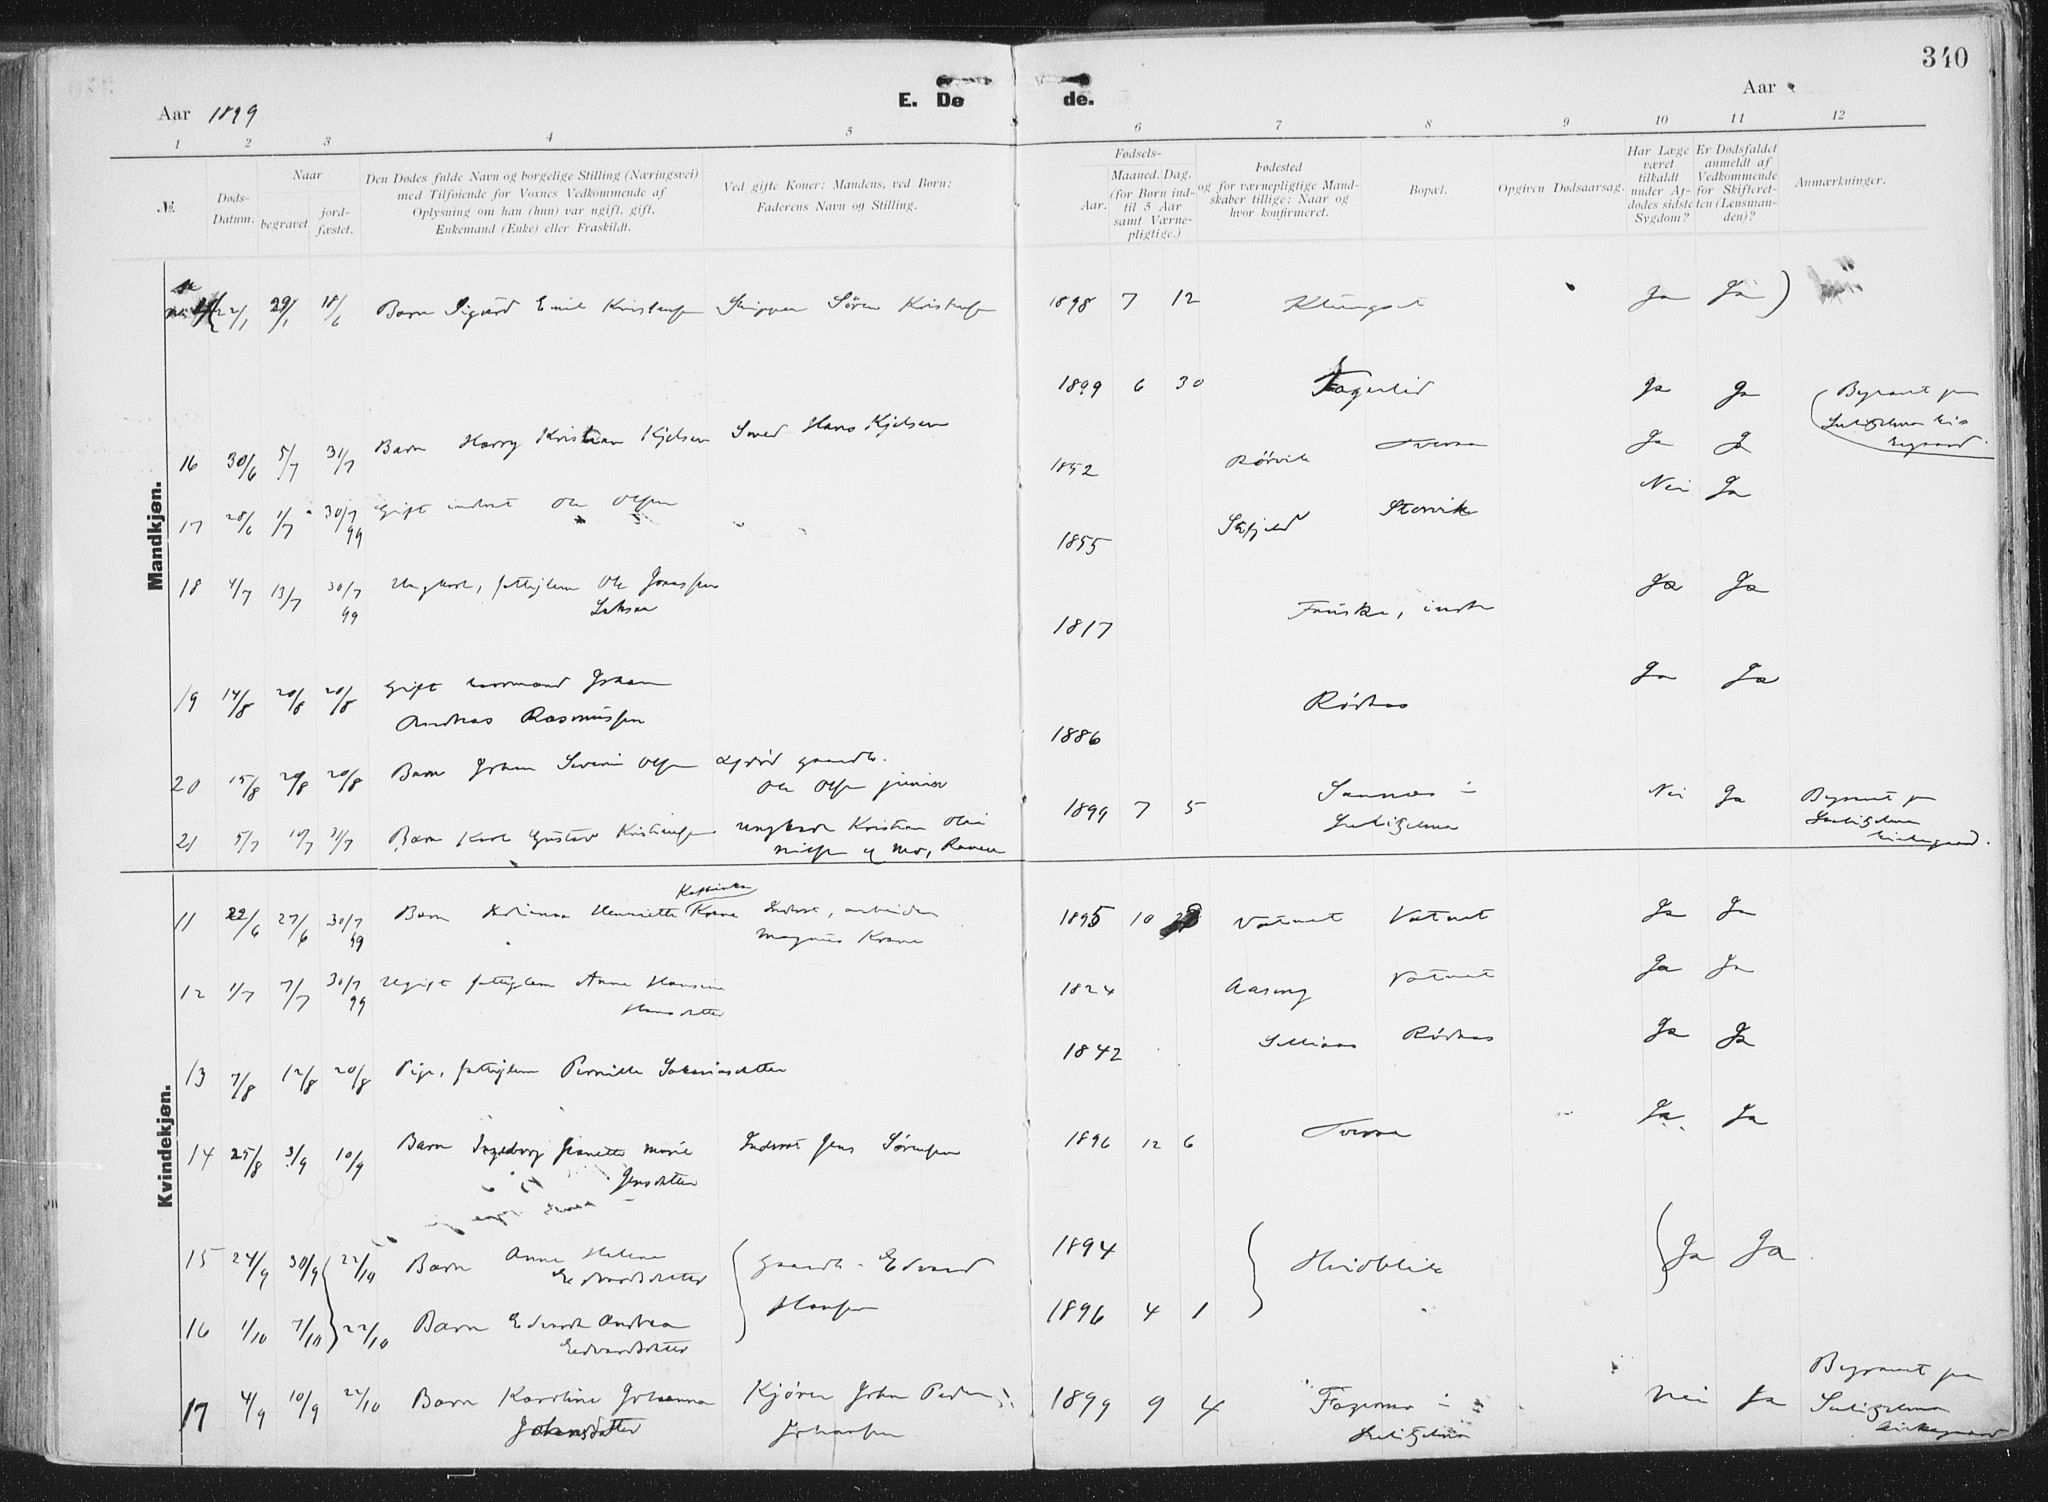 340
E. Dø de.
Aar 1899
Aar
1 2 3 4 5 6 7 8 9 10 11 12
№.
Døds-
Datum.
Naar
begravet
jord-
fæstet.
Den Dødes fulde Navn og borgelige Stilling (Næringsvei)
med Tilføiende for Voxnes Vedkommende af
Oplysning om han (hun) var ugift, gift,
Enkemand (Enke) eller Fraskildt.
Ved gifte Koner: Mandens, ved Børn:
Faderens Navn og Stilling.
Fødsels-
Aar.
Maaned. Dag.
(for Børn ind-
til 5 Aar
samt Værne-
pligtige.)
Fødested
og for værnepligtige Mand-
skaber tillige: Naar og
hvor konfirmeret.
Bopæl.
Opgiven Dødsaarsag.
Har Læge
været
tilkaldt
under Af-
dødes sidste
Sygdom?
Er Dødsfaldet
anmeldt af
Vedkommende
for Skifteret-
ten (Lensman-
den)?
Anmærkninger.
Mandkjøn.
22/1 29/1 18/6 Barn Sigurd Emil Kristensen Skipper Søren Kristensen 1898 7 12 Klungset Ja Ja
16 30/6 5/7 31/7 Barn Harry Kristian Kjelsen Smed Hans Kjelsen 1899 6 30 Fagerlid Ja Ja Begravet paa
Sulitjelma
17 28/6 1/7 30/7 99 Gift inderst Ole Olsen 1852 Rørvik Tverra Ja Ja
18 4/7 13/7 30/7 99 Ungkarl, fattiglem Ole Jonassen 1855 Storvik Nei Ja
19 14/8 20/8 20/8 Gift Johan
Andreas Rasmussen 1817 Fauske, inderst Ja Ja
20 15/8 20/8 20/8 Barn Johan Severin Olsen gaardbr.
Ole Olsen junior 1886 Rødaas Ja Ja
21 5/7 10/7 31/7 Barn Karl Gustav Kristiansen Ungkarl Kristian Olai
Nilsen 1899 7 5 Sannæs i
Sulitjelma Nei Ja Begravet paa
Sulitjelma
kirkegaard.
Kvindekjøn.
11 22/6 27/6 30/7 99 Barn Henriette Krane Inderst, arbeider
Magnus Krane 1895 10 Vatnet Vatnet Ja Ja
12 1/7 7/7 30/7 99 Ugift fattiglem Anne Hansine
Hansdatter 1824 Aaseng Vatnet Ja Ja
13 7/8 12/8 20/8 Pige, fattiglem Pernille Zakariasdatter 1842 Rødaas Ja Ja
14 25/8 3/9 10/9 Barn Ingeborg Jeanette Marie
Jensdatter Inderst Jens Sørensen 1896 12 6 Tverra Ja Ja
15 24/9 30/9 22/10 Barn Anne Helene
Edvardsdatter Gaardbr. Edvard
Hansen 1894 Hvidblik Ja Ja
16 1/10 7/10 22/10 Barn Edvarda Andrea
Edvardsdatter 1896 4 1
17 4/9 10/9 22/10 Barn Karoline Johanna
Johansdatter Kjører Johan Peder
Johansen 1899 9 4 Fagermo i
Sulitjelma Nei Ja Begravet paa
Sulitjelma
kirkegaard